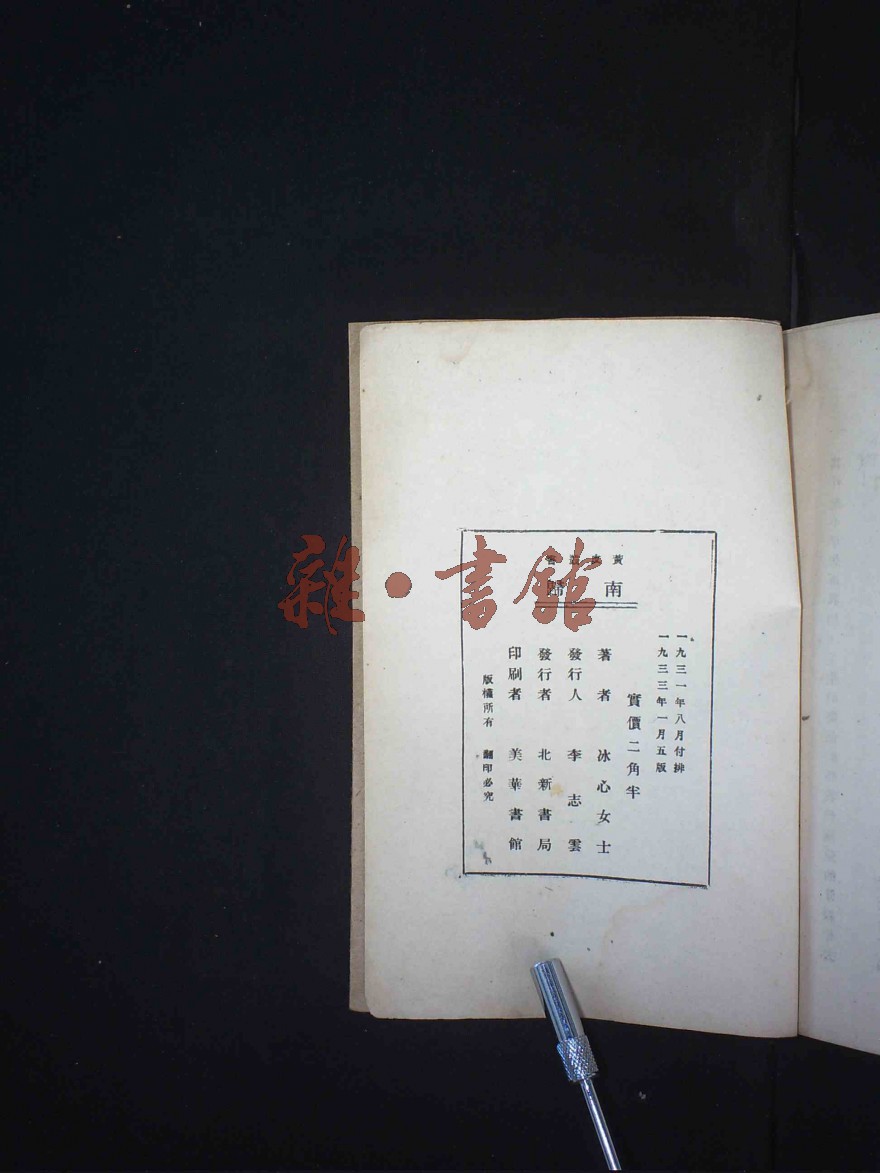 黃
南歸
一九三一年八月付排
一九三三年一月五版
實價二角半
著者 冰心女士
發行人 李志雲
發行者 北新書局
印刷者 美華書館
版權所有 翻印必究
雜·書館